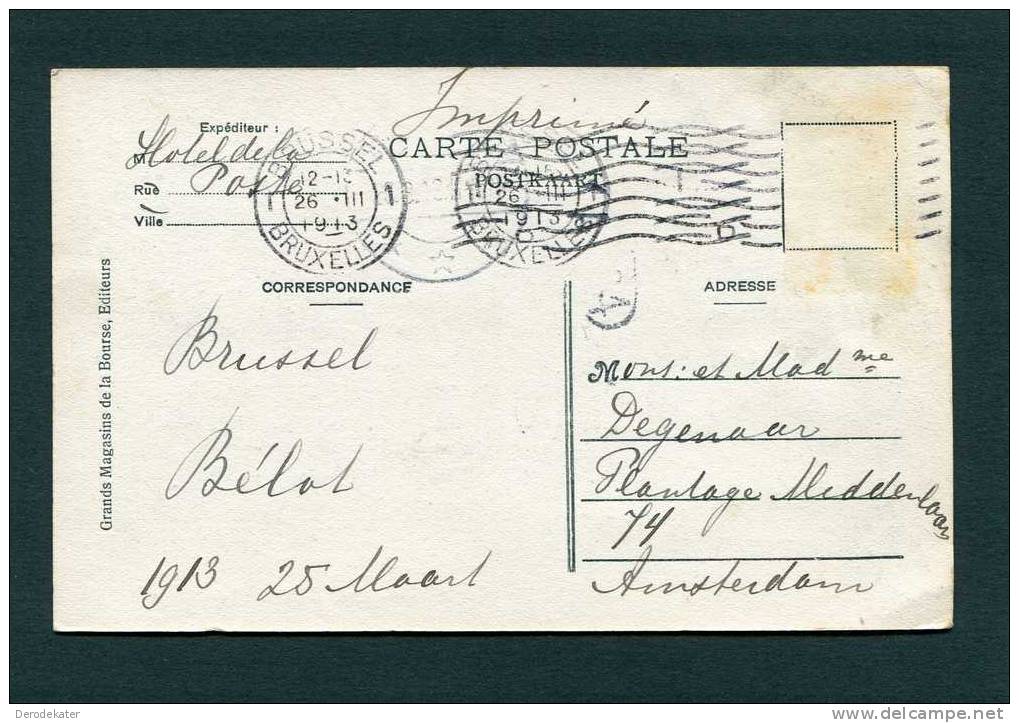 Imprimé
Expéditeur :
CARTE POSTALE
POSTKAART
M Hotel de la
Rue Poste
Ville
BRUSSEL
12-13
26 III
1913
BRUXELLES
1 1
26 III
1913
BRUXELLES
CORRESPONDANCE
ADRESSE
Grands Magasins de la Bourse, Editeurs
Brussel
Bélot
1913 25 Maart
Mons: et Madme
Degenaar
Plantage Middenlaan
74
Amsterdam
Derodekater
delcampe.net